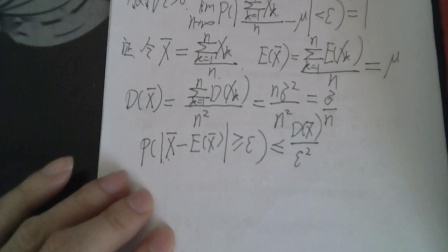 lim P(|∑_{k=1}^{n} X_k / n − μ| < ε) = 1
令 X̄ = ∑_{k=1}^{n} X_k / n    E(X̄) = ∑_{k=1}^{n} E(X_k) / n = μ
D(X̄) = ∑_{k=1}^{n} D(X_k) / n² = nδ² / n² = δ / n
P(|X̄ − E(X̄)| ≥ ε) ≤ D(X̄) / ε²